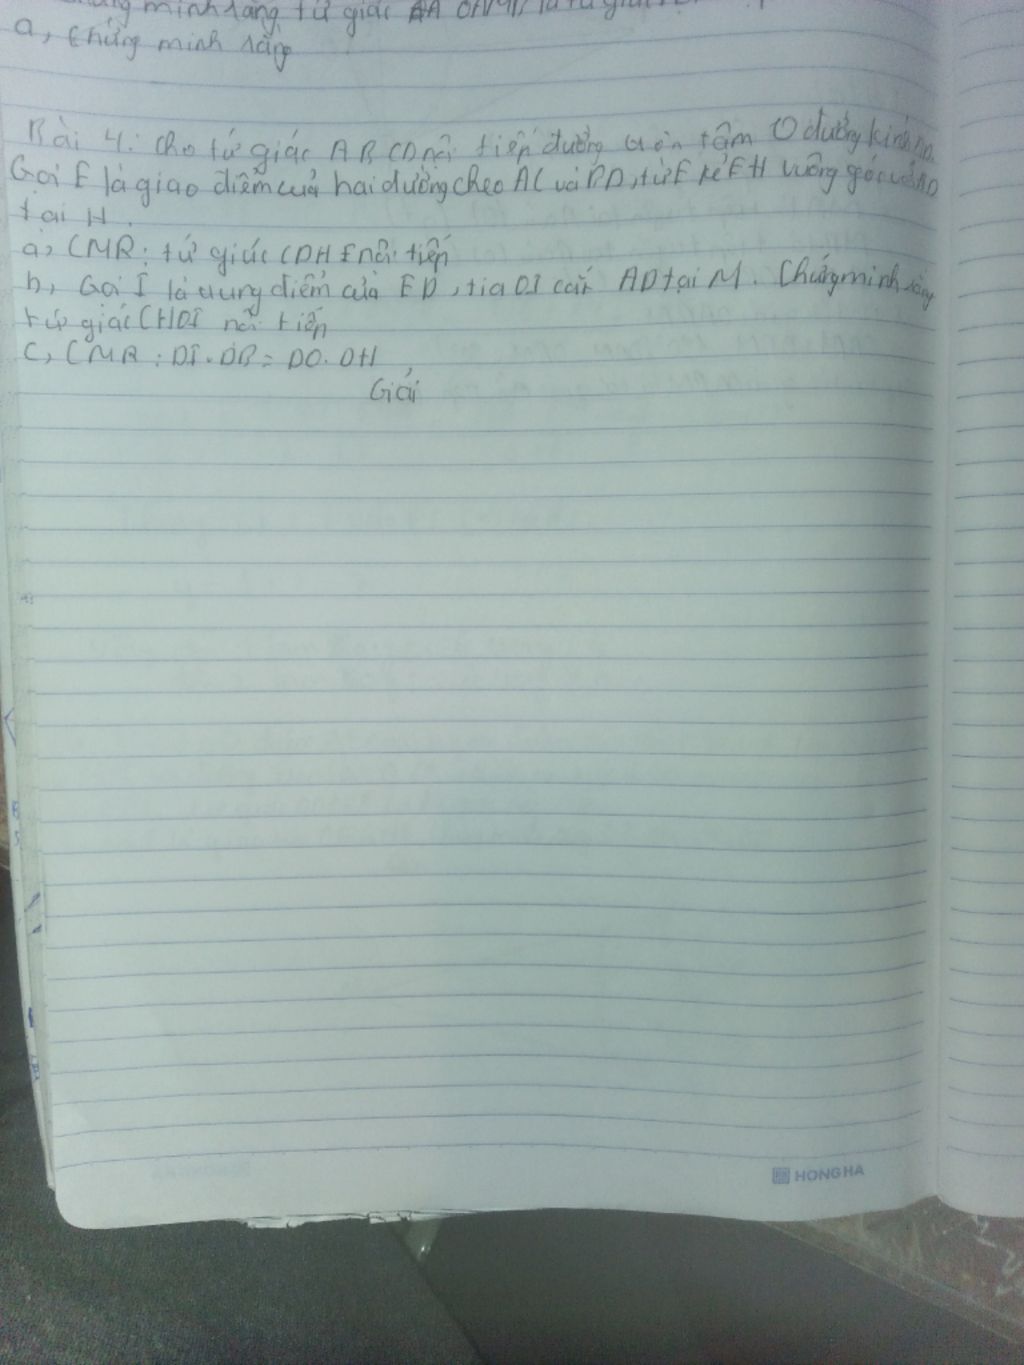 minh rằng tứ giác
a, Chứng minh rằng
Bài 4: Cho tứ giác ABCD nội tiếp đường tròn tâm O đường kính AD.
Gọi E là giao điểm của hai đường chéo AC và BD, từ E kẻ EH vuông góc với AD
tại H.
a, CMR: tứ giác CDHE nội tiếp
b, Gọi I là trung điểm của ED, tia OI cắt AD tại M. Chứng minh rằng
tứ giác CHOI nội tiếp
c, CMR: DI.DB = DO.DH
Giải
HONG HA